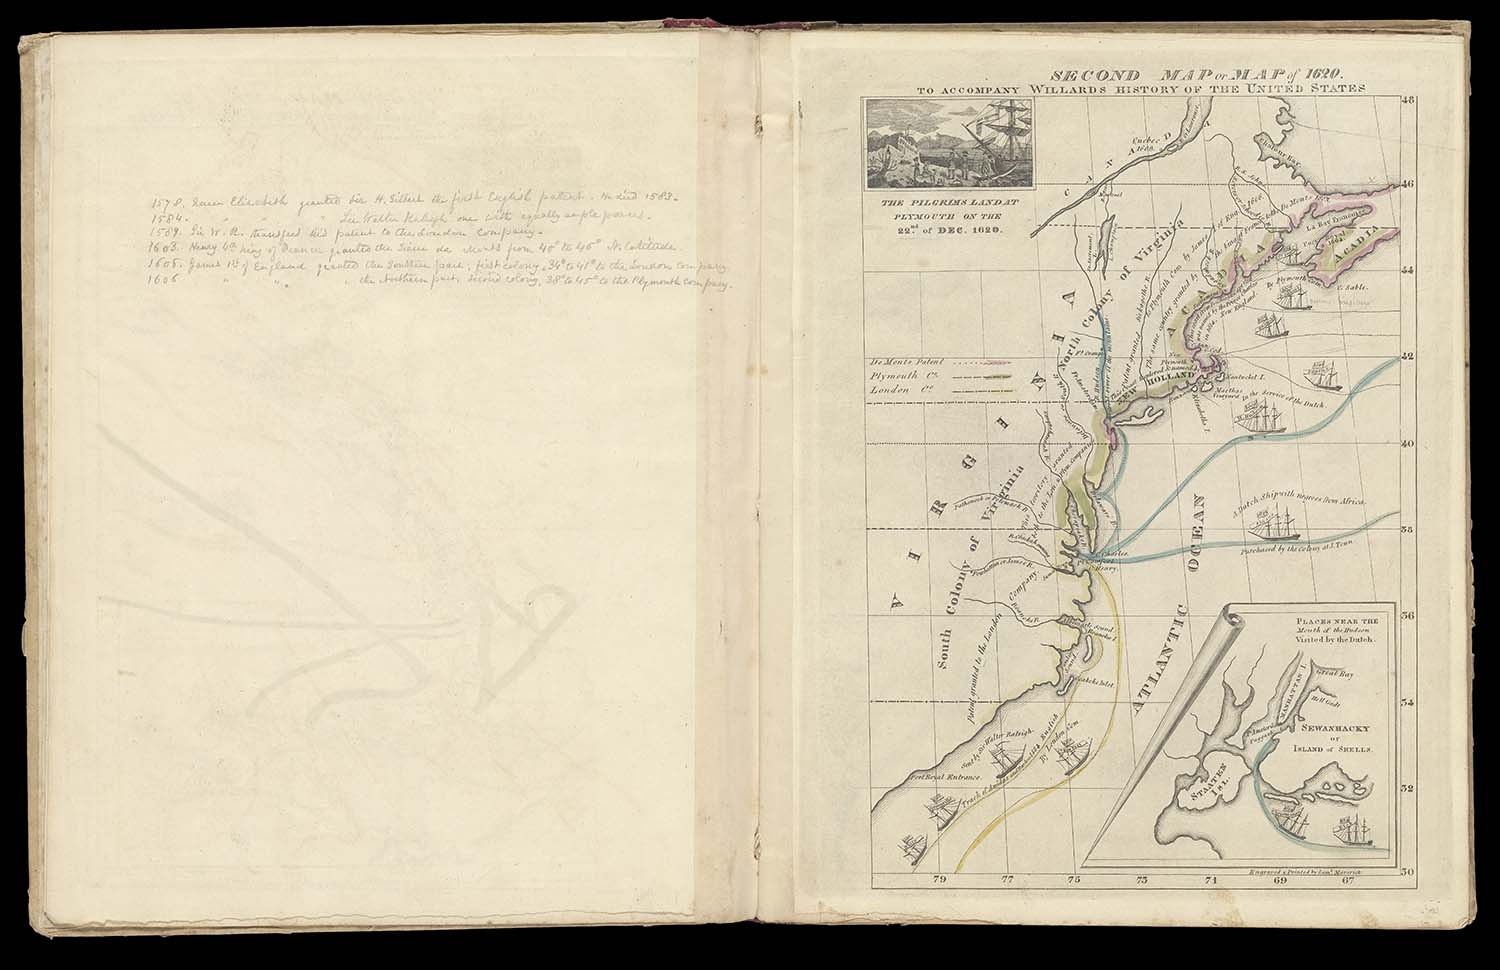 1578. Queen Elizabeth granted Sir H. Gilbert the first English patent. He died 1583.
1584. " " " Sir Walter Raleigh one with equally ample powers.
1589. Sir W. R. transfered his patent to the London Company.
1603. Henry 4th king of France granted the Sieur de Monts from 40° to 46° N. Latitude.
1606. James 1st of England granted the Southern part, first colony, 34° to 41° to the London company.
1606 " " " the Northern part, second colony, 38° to 45° to the Plymouth company.
SECOND MAP or MAP of 1620.
TO ACCOMPANY WILLARDS HISTORY OF THE UNITED STATES
THE PILGRIMS LAND AT
PLYMOUTH ON THE
22nd of DEC. 1620.
48
46
44
42
40
38
36
34
32
30
79
77
75
73
71
69
67
CANADA
Quebec
1608.
St Lawrence
Chaleur Bay
De Monts
La Bay Francoise
ACADIA
ACADIA
C. Sable.
By Plymouth Com.
New England
North Colony of Virginia
VIRGINIA
South Colony of Virginia
De Monts Patent
Plymouth Co.
London Co.
NEW HOLLAND
New Plymouth
C. Cod
Nantucket I.
Marthas Vineyard
Elizabeth I.
In the Service of the Dutch.
This territory granted
to the Lon. & Plym. Companies
A Dutch Ship with negroes from Africa.
Purchased by the Colony at J. Town
C. Charles.
C. Henry.
Powhatan or James R.
Roanoke R.
Roanoke I.
Patent granted to the London Company.
ATLANTIC OCEAN
Sent by Sir Walter Raleigh.
By London Com
Port Royal Entrance.
PLACES NEAR THE
Mouth of the Hudson
Visited by the Dutch.
MANHATTAN I.
Great Bay
Hell Gadt
SEWANHACKY
or
ISLAND of SHELLS.
STAATEN
ISL.
Engraved & Printed by Saml. Maverick